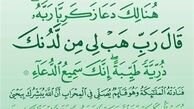 هُنَالِكَ دَعَا زَكَرِيَّا رَبَّهُ
قَالَ رَبِّ هَبْ لِي مِن لَّدُنكَ
ذُرِّيَّةً طَيِّبَةً إِنَّكَ سَمِيعُ الدُّعَاءِ
فَنَادَتْهُ الْمَلَائِكَةُ وَهُوَ قَائِمٌ يُصَلِّي فِي الْمِحْرَابِ أَنَّ اللَّهَ يُبَشِّرُكَ بِيَحْيَى